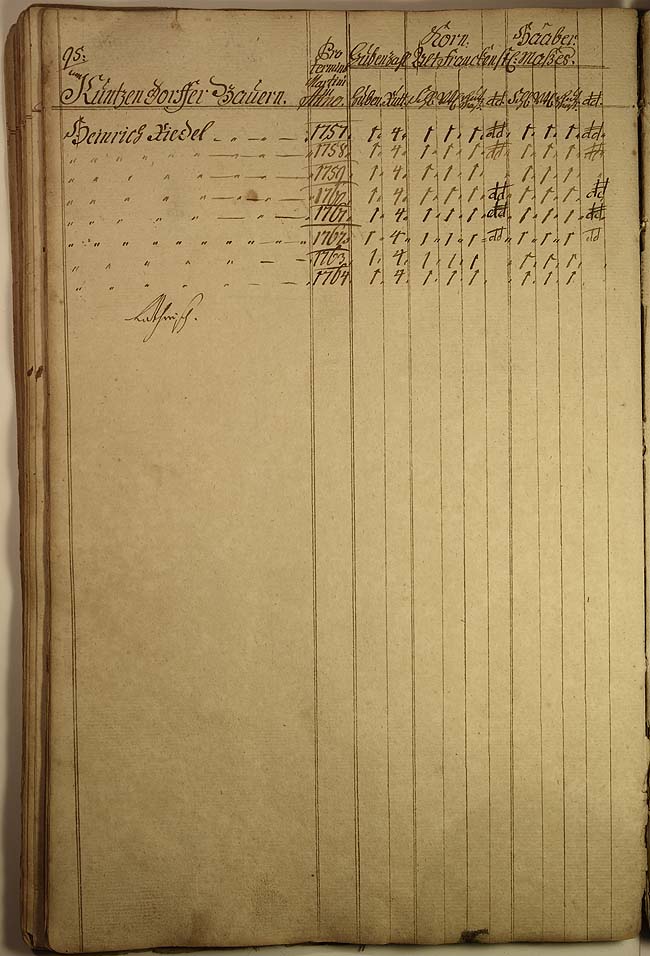 95.
Pro Termino Martini Anno.
Korn. Haaber.
Hubenzahl
Kuntzendorffer Bauern.
Huben
Heinrich Riedel 1757. 1. 4. 1. 1. 1. dd. 1. 1. 1. dd.
" 1758. 1. 4. 1. 1. 1. dd. 1. 1. 1. dd.
" 1759. 1. 4. 1. 1. 1. 1. 1. 1.
" 1760. 1. 4. 1. 1. 1. dd 1. 1. 1. dd
" 1761. 1. 4. 1. 1. 1. dd 1. 1. 1. dd.
" 1762. 1. 4. 1. 1. 1. dd 1. 1. 1. dd
" 1763. 1. 4. 1. 1. 1. 1. 1. 1.
" 1764. 1. 4. 1. 1. 1. 1. 1. 1.